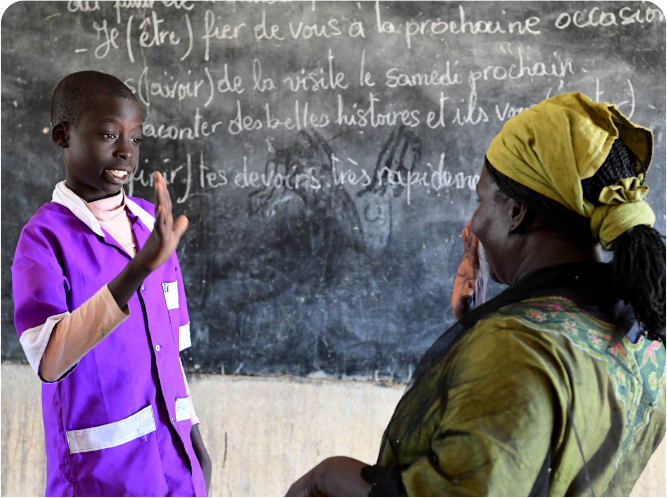 au futur de
- Je (être) fier de vous à la prochaine occasion
s (avoir) de la visite le samedi prochain.
raconter des belles histoires et ils vous
finir) tes devoirs très rapideme